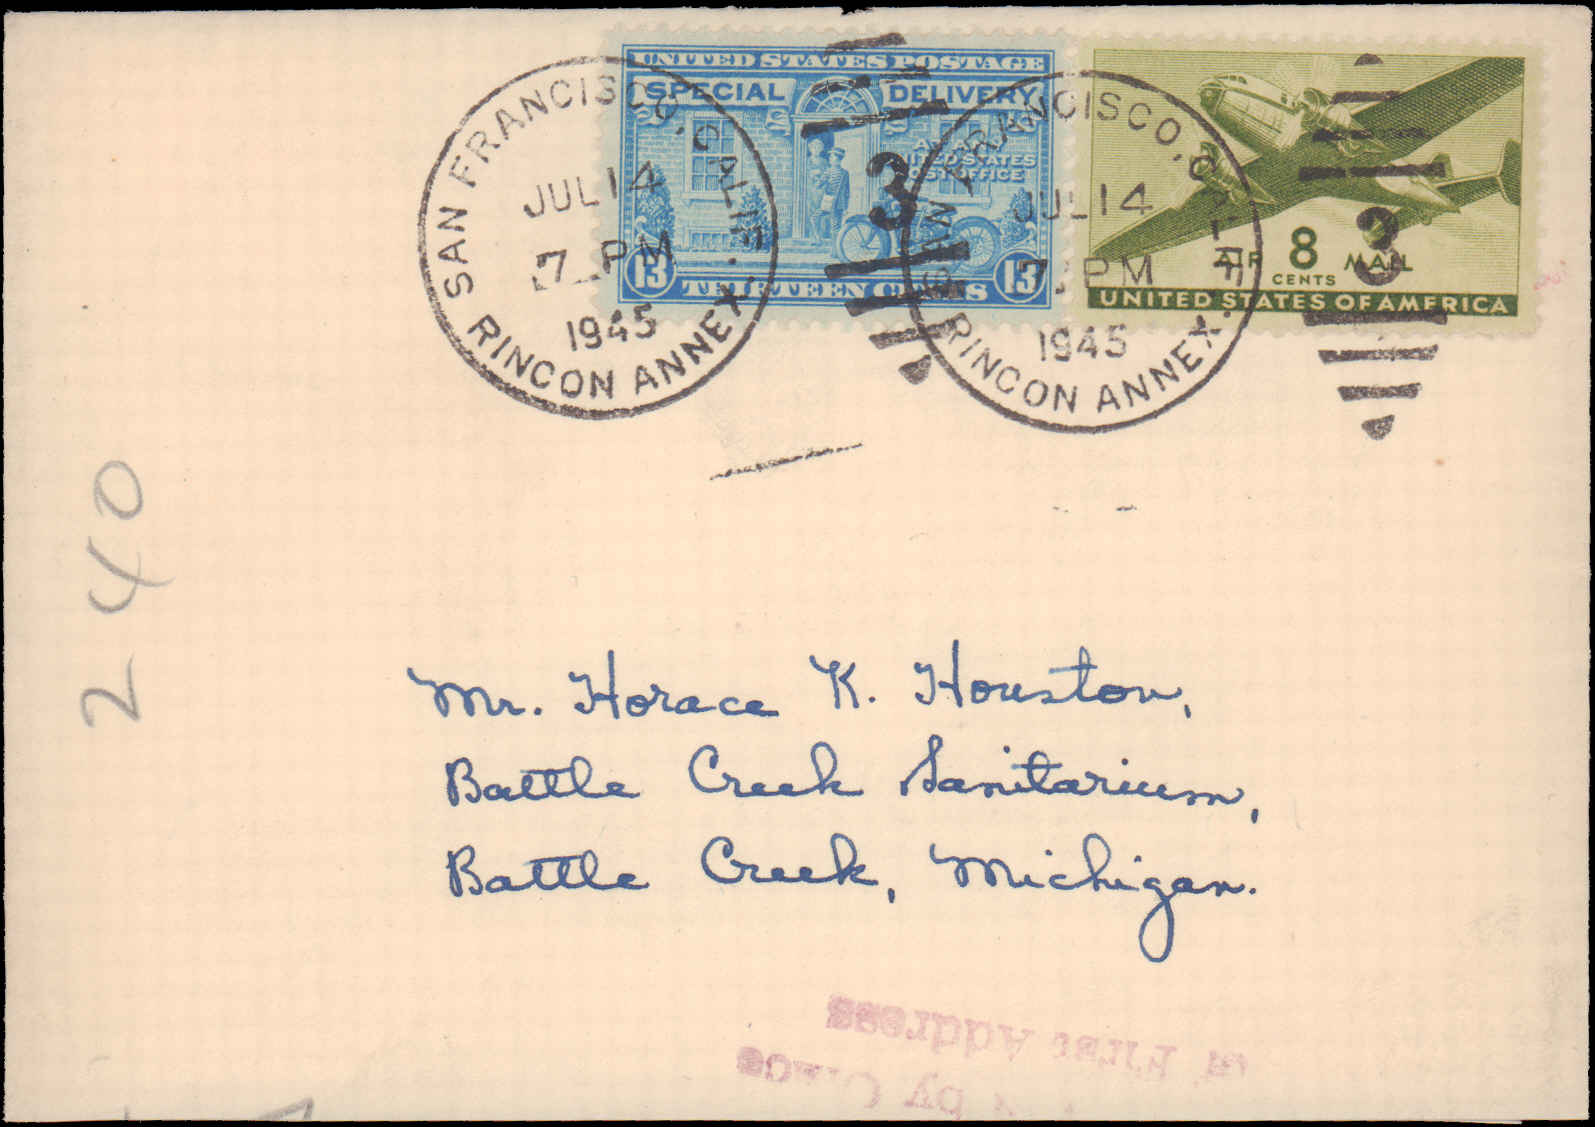 UNITED STATES POSTAGE
SPECIAL DELIVERY
AT ANY
UNITED STATES
POST OFFICE
13 THIRTEEN CENTS 13
AIR 8 CENTS MAIL
UNITED STATES OF AMERICA
SAN FRANCISCO, CALIF.
JUL 14
7 PM
1945
RINCON ANNEX
3
SAN FRANCISCO, CALIF.
JUL 14
7 PM
1945
RINCON ANNEX
3
240
Mr. Horace K. Houston,
Battle Creek Sanitarium,
Battle Creek, Michigan.
First Address
by